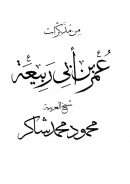 من مذكرات
عُمَر بن أبي رَبيعَة
شيخ العربية
محمود محمد شاكر